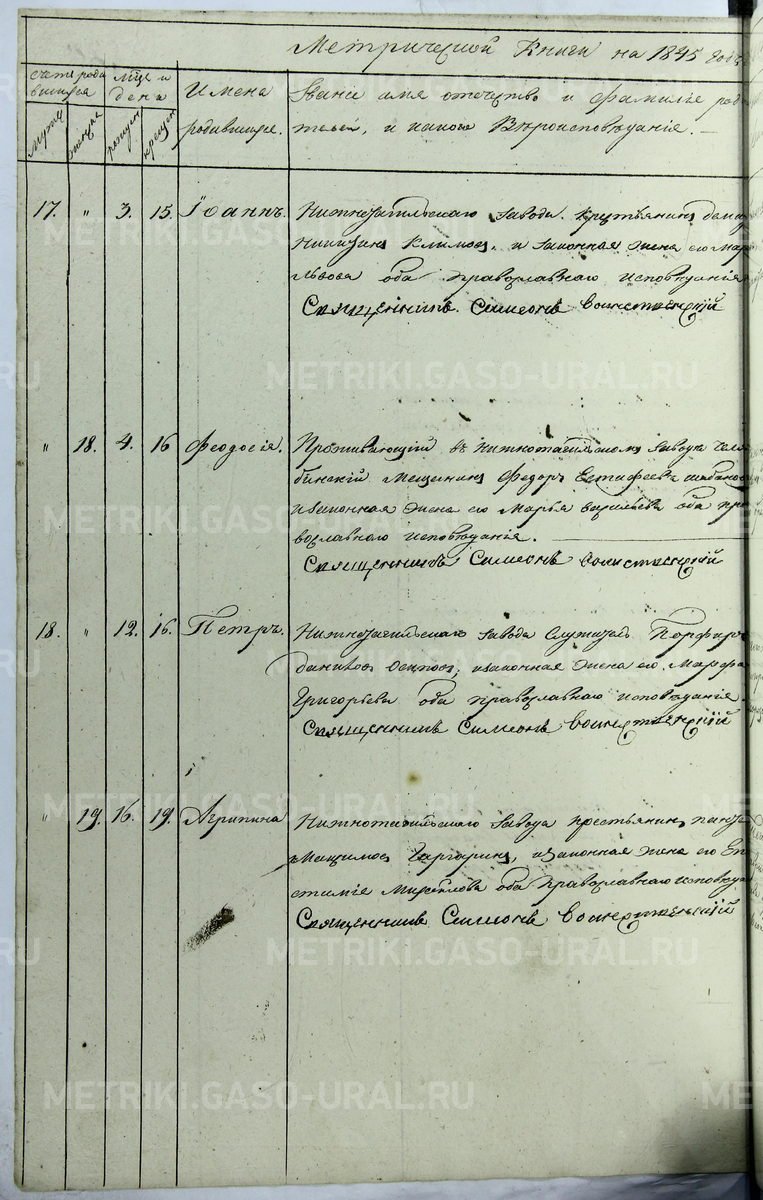 Метрической Книги на 1845 годъ
счетъ роди
вшихся
мѣся и
дена
Имена
родившихъ.
Званіе имя отечество и фамиліе род
телей, и какого Вѣроисповѣданія. —
мужес
женска
рожден
крещен
17. " 3. 15. Іоаннъ.
Нижнетагильскаго завода. крестьянинъ
Никитинъ Климовъ, и законная жена его Мар
Львова оба православнаго исповѣданія
Священникъ Симеонъ Воинственскій
" 18. 4. 16 Феодосія.
Проживающій въ Нижнотагильскомъ заводѣ Челя
бинскій Мещенинъ Федоръ Естифеевъ
и законная жена его Марья Васильева оба пра
вославнаго исповѣданія.
Священникъ Симеонъ Воинственскій
18. " 12. 16. Петръ.
Нижнетагильскаго завода служитель Порфиръ
Даниловъ Осиповъ, и законная жена его Марфа
Григорьева оба православнаго исповѣданія.
Священникъ Симеонъ Воинственскій
" 19. 16. 19. Агрипина
Нижнотагильскаго завода крестьянинъ
Максимовъ Гаргаринъ, и законная жена его Еп
стимія Михайлова оба православнаго исповѣда
Священникъ Симеонъ Воинственскій
METRIKI.GASO-URAL.RU